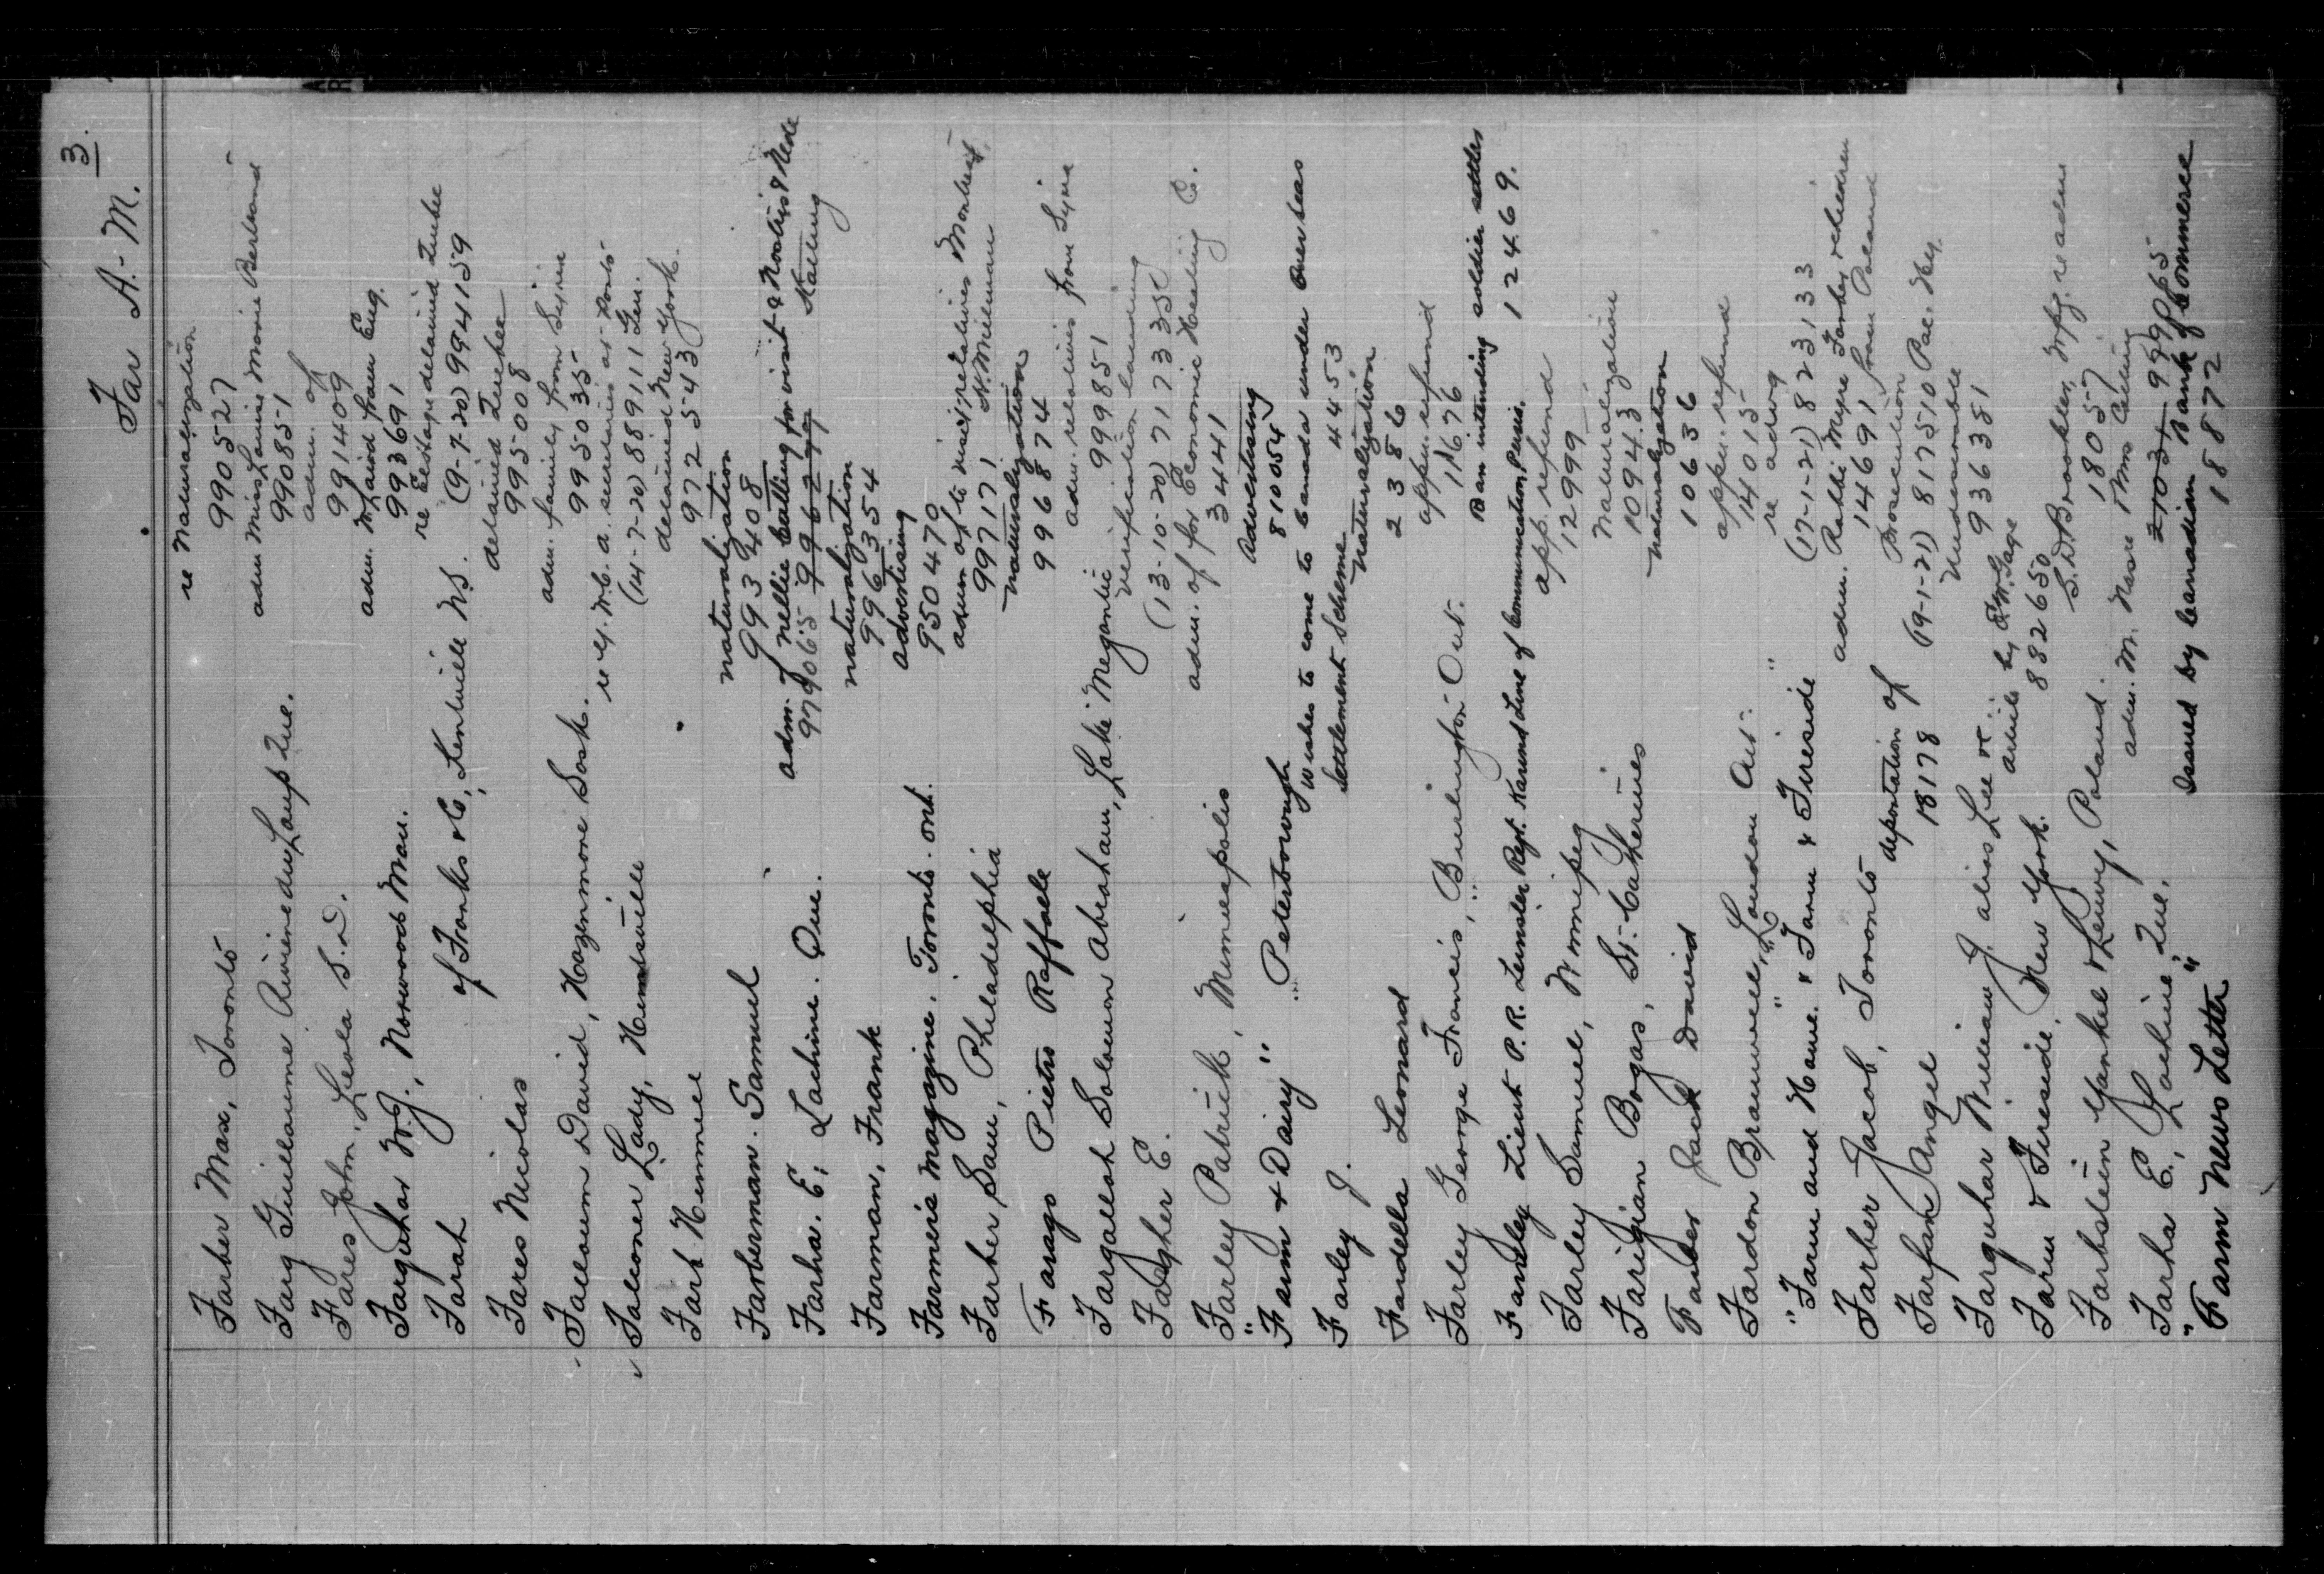 3.
Far A.-M.
re Naturalization
Farber Max, Toronto 990527
adm Miss Laurie Marie Bertrand
Farg Guillaume Riviere du Loup Que. 990851
adm. of
Fares John, Leola S.D. 991409
adm. W. Laird from Eng.
Farquhar W.J., Norwood Man. 993691
re Eestage detained Quebec
Farah of Franks & Co, Kentville N.S. (9-7-20) 994159
detained Quebec
Fares Nicolas 995008
adm. family from Syria
Falloum David, Hazenmore Sask. 995035
re Y.W.C.A. secretaries at Ports
Falconer Lady, Huntsville (14-7-20) 889111 Gen.
detained New York.
Fark Hemmel 972543
naturalization
Farberman. Samuel 993408
adm. of Nellie Batting for visit & Noatris & Nede Haeling
Farha. E, Lachine. Que. 979065
naturalization
Farman, Frank 996354
advertising
Farmer's Magazine. Toronto. Ont. 950470
adm of to visit relatives Montreal,
Farber Sam, Philadelphia 997171 N. Millman
naturalization
Farago Pietro Raffaele 996874
adm. relatives from Syria
Fargallah Solomon Abraham, Lake Megantic 999851
verification landing
Fargher E. (13-10-20) 717335
adm. of for Economic Healing C.
Farley Patrick, Minneapolis 3441
Advertising
"Farm & Dairy" Peterborough 810054
Wishes to come to Canada under Overseas
Farley J. Settlement Scheme 4453
Naturalization
Fardella Leonard 2386
appn. refund
Farley George Francis, Burlington Ont. 11676
Is an intending soldier settler
Farsley Lieut P.R. Leinster Regt. Karund Line of Communication, Persia. 12469.
app. refund
Farley Samuel, Winnipeg 12999
Naturalization
Farigian Bogas, St. Catherines 10943
naturalization
Farber Jack David 10636
appn. refund
Fardon Bramwell, London Ont. 14015
re advtg
"Farm and Home." & "Farm & Fireside" (17-1-21) 823133
adm. Rabbi Meyer Farber & children
Farber Jacob, Toronto 14691 from Poland
deportation of Prosecution
Farfan Angel 18178 (19-1-21) 817510 Pac. Hy.
Undesirable
Farquhar William J. alias Lee 936381
re article by E.W. Gage
Farm & Fireside, New York. 882650
S.D. Brookler, Wpg. re adm
Farbstein Yankel & Leuvy, Poland. 18057
Farha E., Lachine Que. 999065
Issued by Canadian Bank of Commerce
"Farm News Letter" 18872